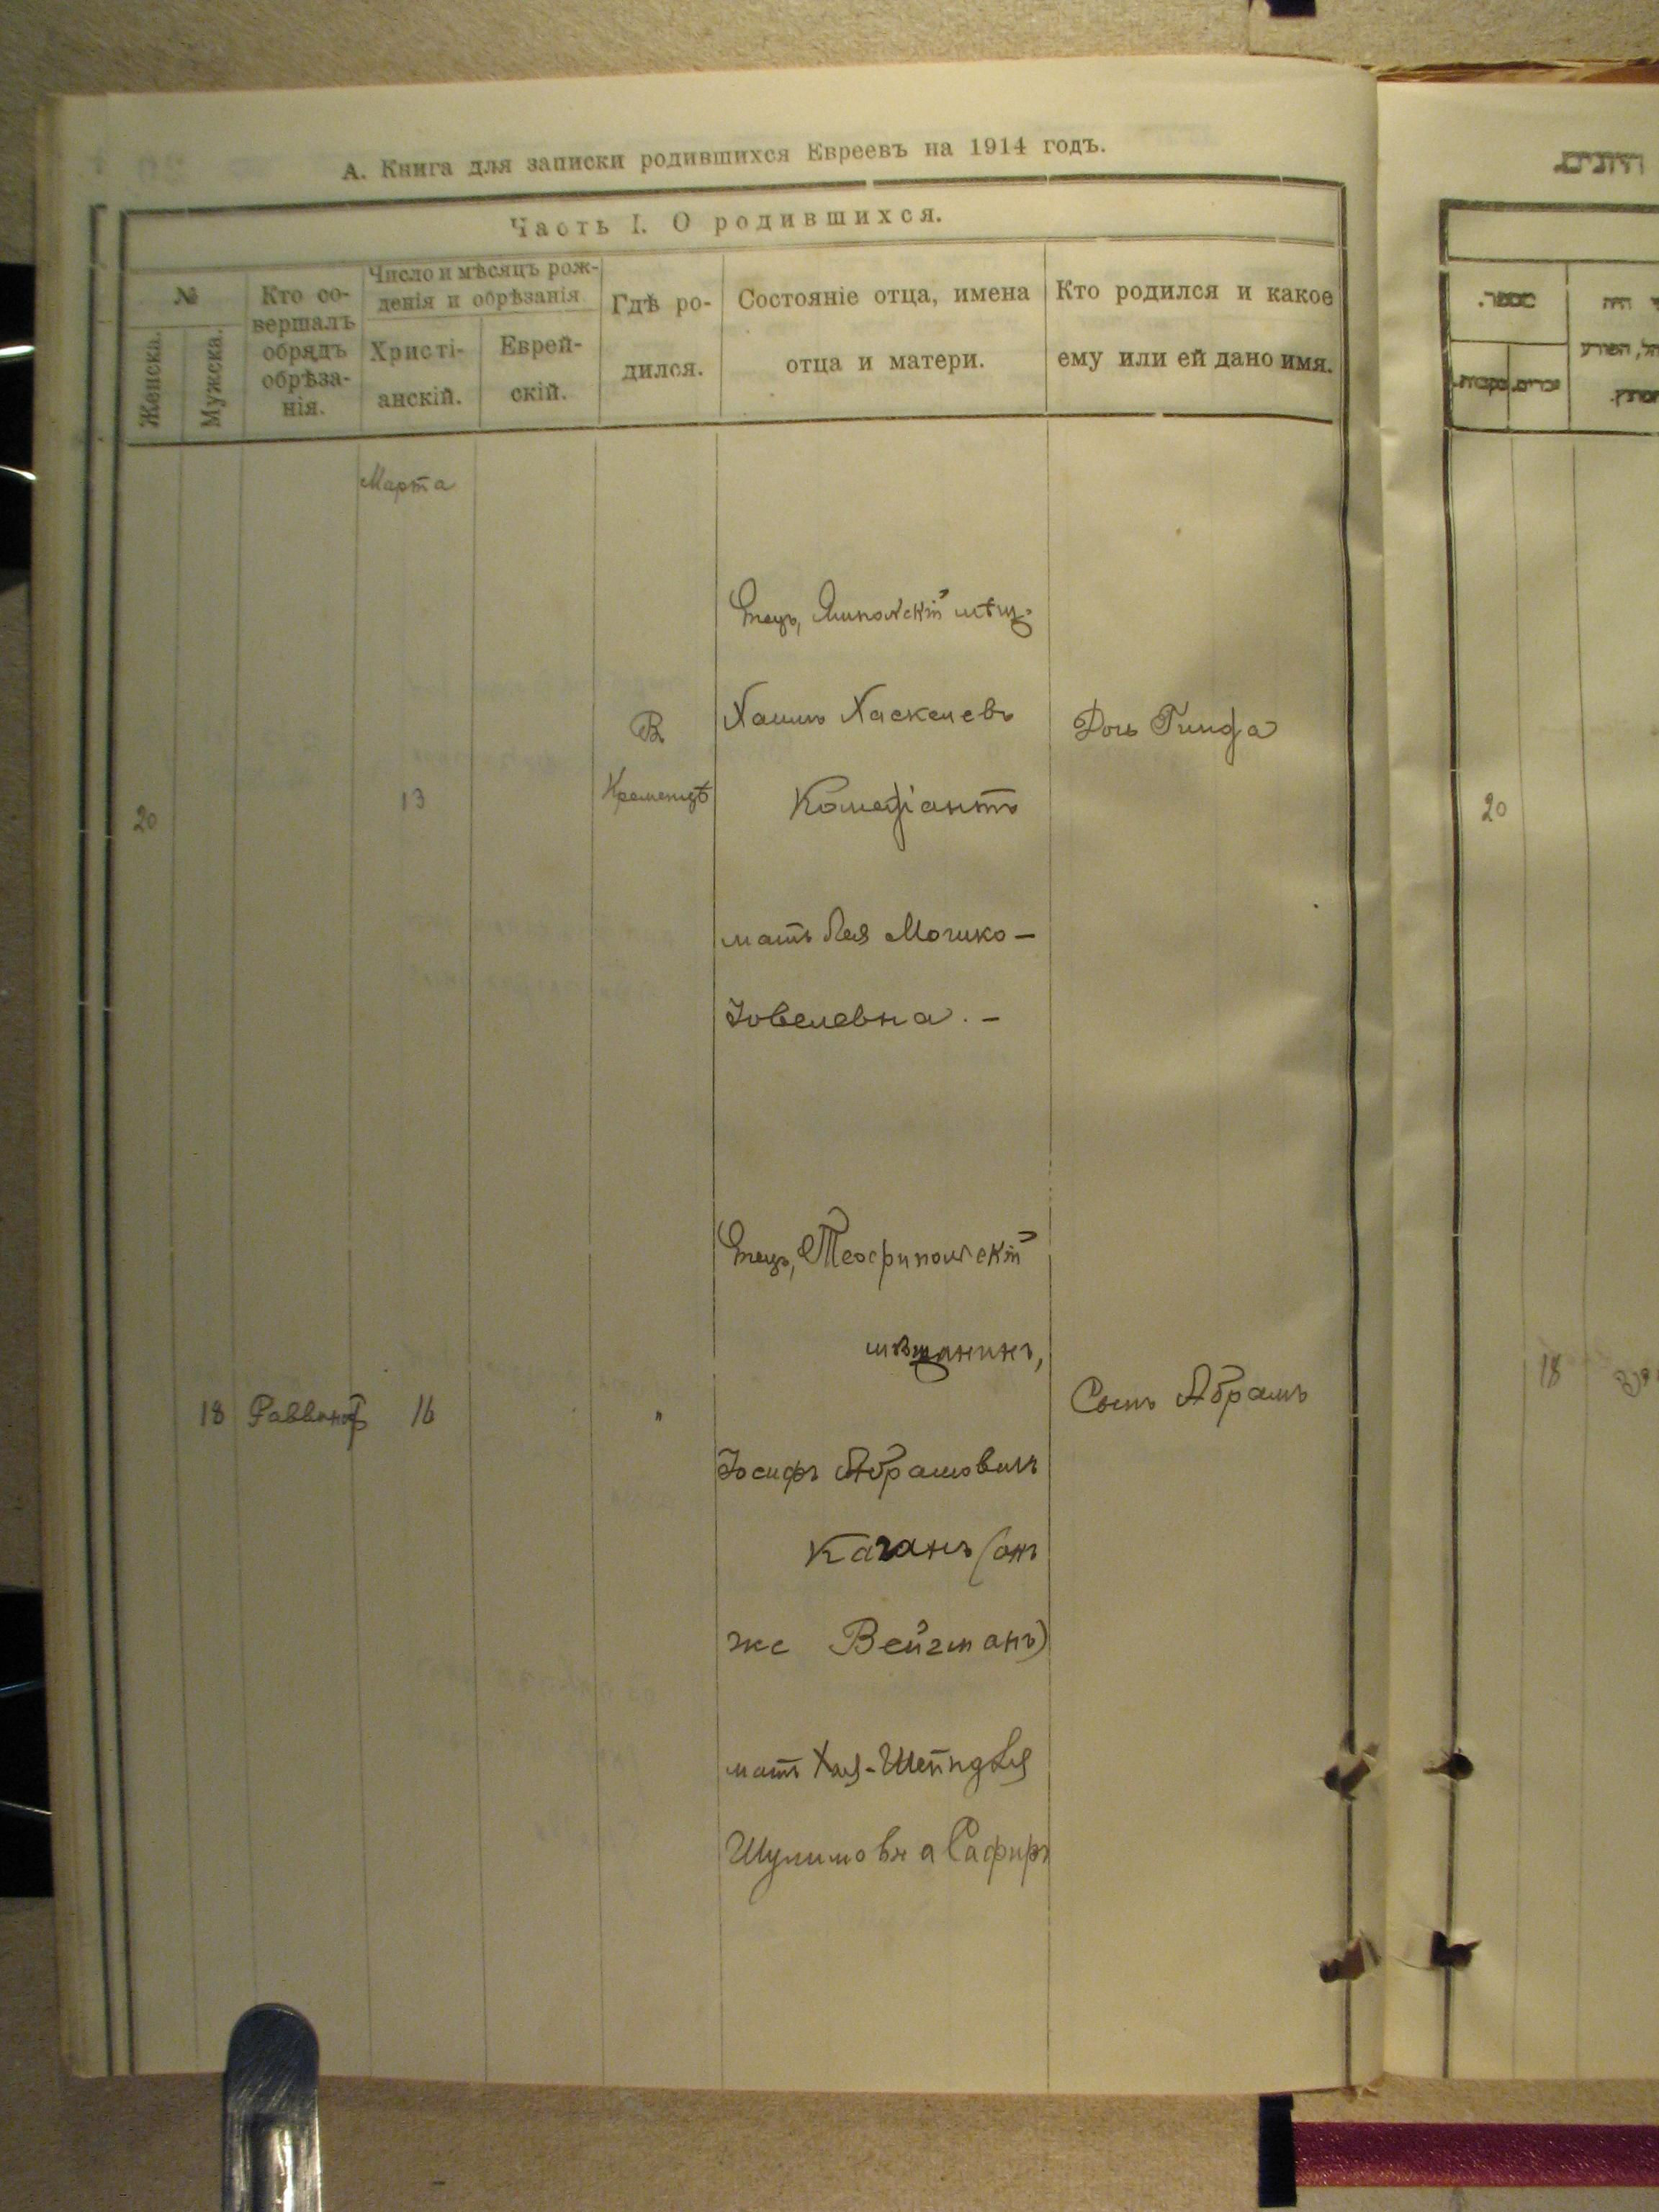 А. Книга для записки родившихся Евреевъ на 1914 годъ.
Часть I. О родившихся.
№
Женска.
Мужска.
Кто со-
вершалъ
обрядъ
обрѣза-
нія.
Число и мѣсяцъ рож-
денія и обрѣзанія
Христі-
анскій.
Еврей-
скій.
Гдѣ ро-
дился.
Состояніе отца, имена
отца и матери.
Кто родился и какое
ему или ей дано имя.
Марта
20
13
В
Кременцѣ
Отецъ, Ямпольскій мѣщ.
Хаимъ Хаскелевъ
Комедіантъ
мать Лея Мошко-
Іовелевна. -
Дочь Гинда
18
Раввинъ
16
"
Отецъ, Теофипольскій
мѣщанинъ,
Іосифъ Абрамовичъ
Каганъ (онъ
же Вейгманъ)
мать Хая-Шейндля
Шулимовна Сафиръ
Сынъ Абрамъ
מספר.
20
18